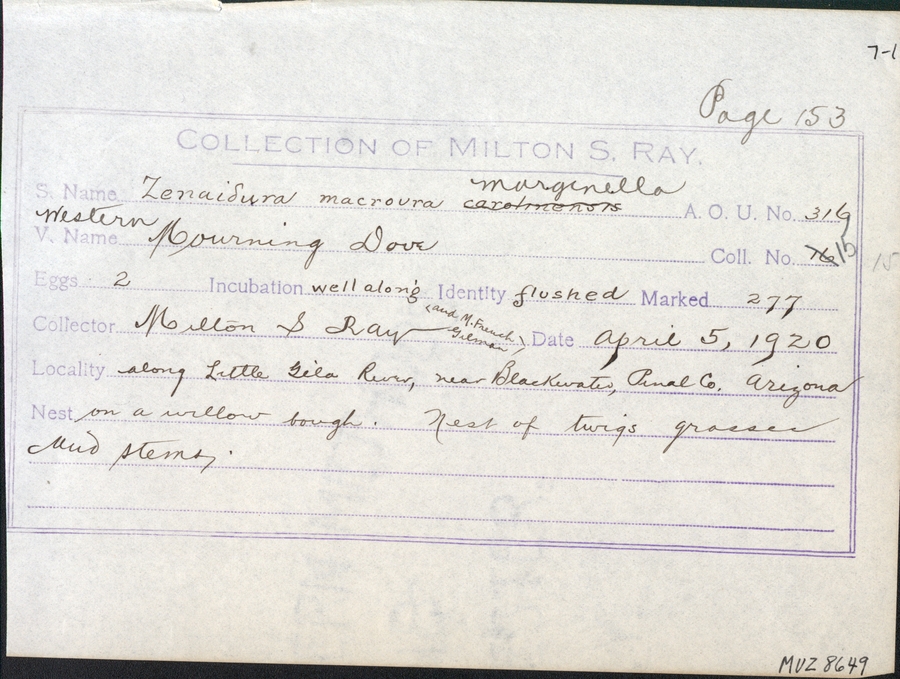 7-1
Page 153
COLLECTION OF MILTON S. RAY.
marginella
S. Name Zenaidura macroura carolinensis A. O. U. No. 316
Western
V. Name Mourning Dove Coll. No. 76 15 15
Eggs 2 Incubation well along Identity flushed Marked 277
(and M. French Gilman)
Collector Milton S Ray Date April 5, 1920
Locality along Little Gila River, near Blackwater, Pinal Co. Arizona
Nest on a willow bough. Nest of twigs grasses
and stems.
MVZ 8649